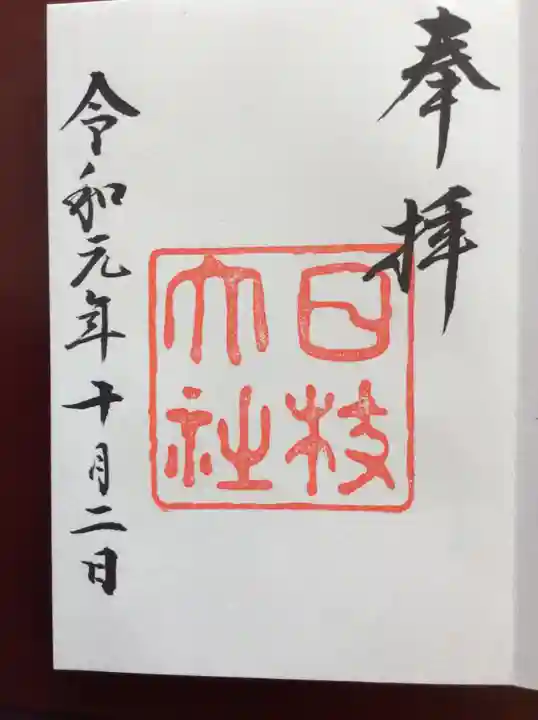 奉拝
日枝
大社
令和元年十月二日